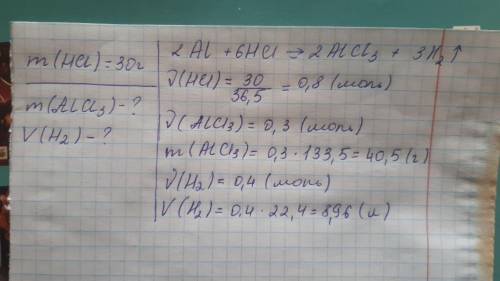 m(HCl)=30г
m(AlCl₃)-?
V(H₂)-?
2Al + 6HCl → 2AlCl₃ + 3H₂↑
ν(HCl) = 30/36,5 = 0,8 (моль)
ν(AlCl₃) = 0,3 (моль)
m(AlCl₃) = 0,3 · 133,5 = 40,5 (г)
ν(H₂) = 0,4 (моль)
V(H₂) = 0,4 · 22,4 = 8,96 (л)